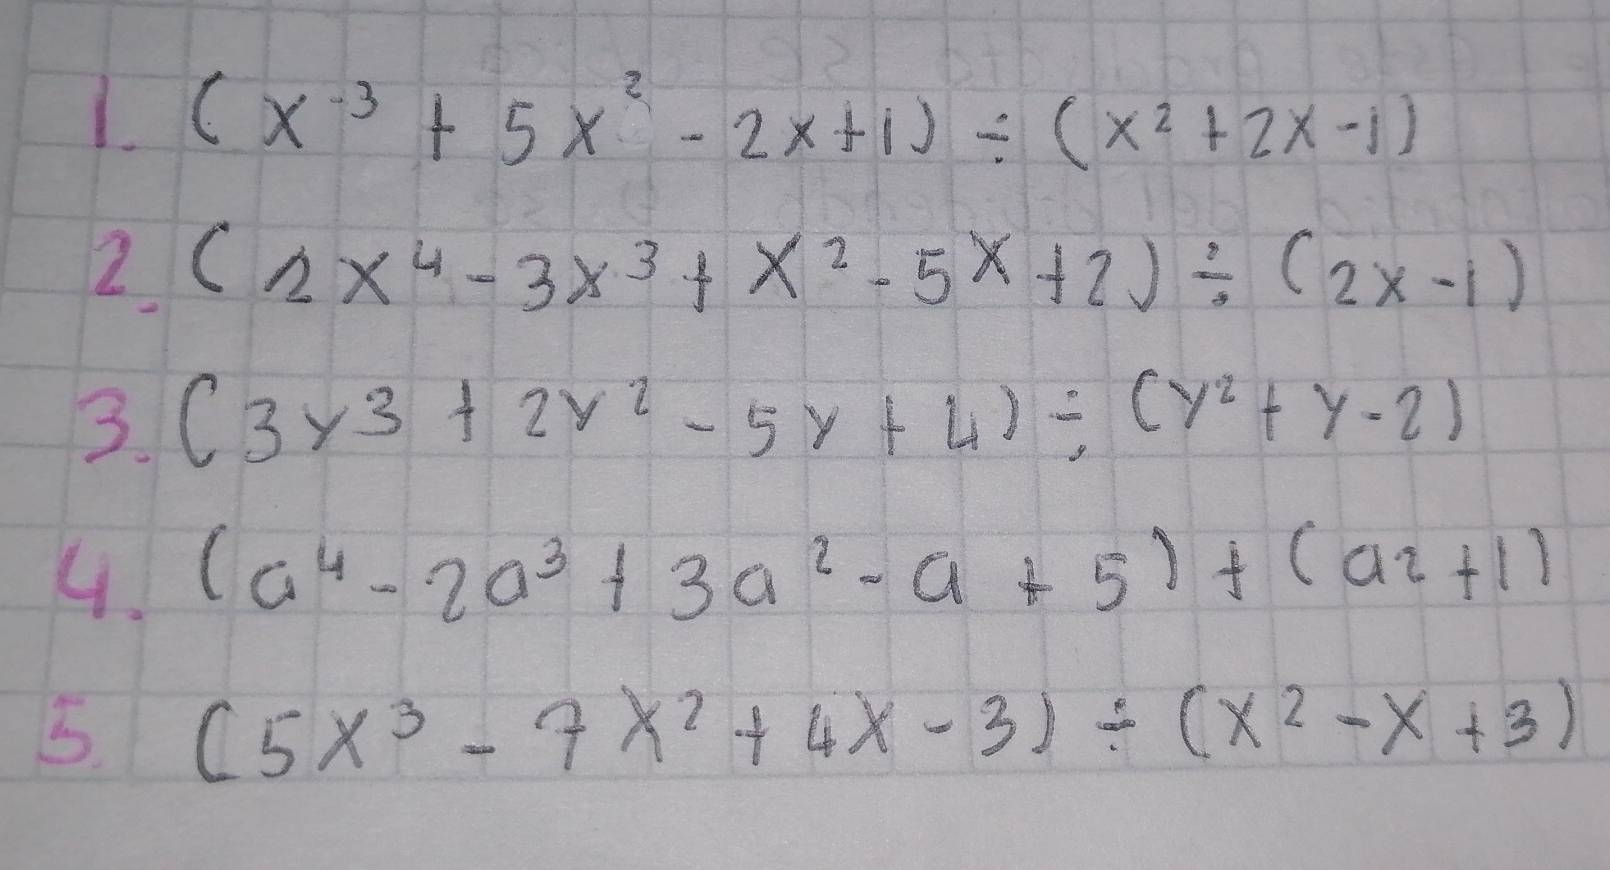 1. (x⁻³ + 5x² - 2x+1) ÷ (x² + 2x -1)
2. (2x⁴ - 3x³ + x² - 5x + 2) ÷ (2x - 1)
3. (3y³ + 2y² - 5y + 4) ÷ (y² + y - 2)
4. (a⁴ - 2a³ + 3a² - a + 5) + (a2 + 1)
5. (5x³ - 7x² + 4x - 3) ÷ (x² - x + 3)